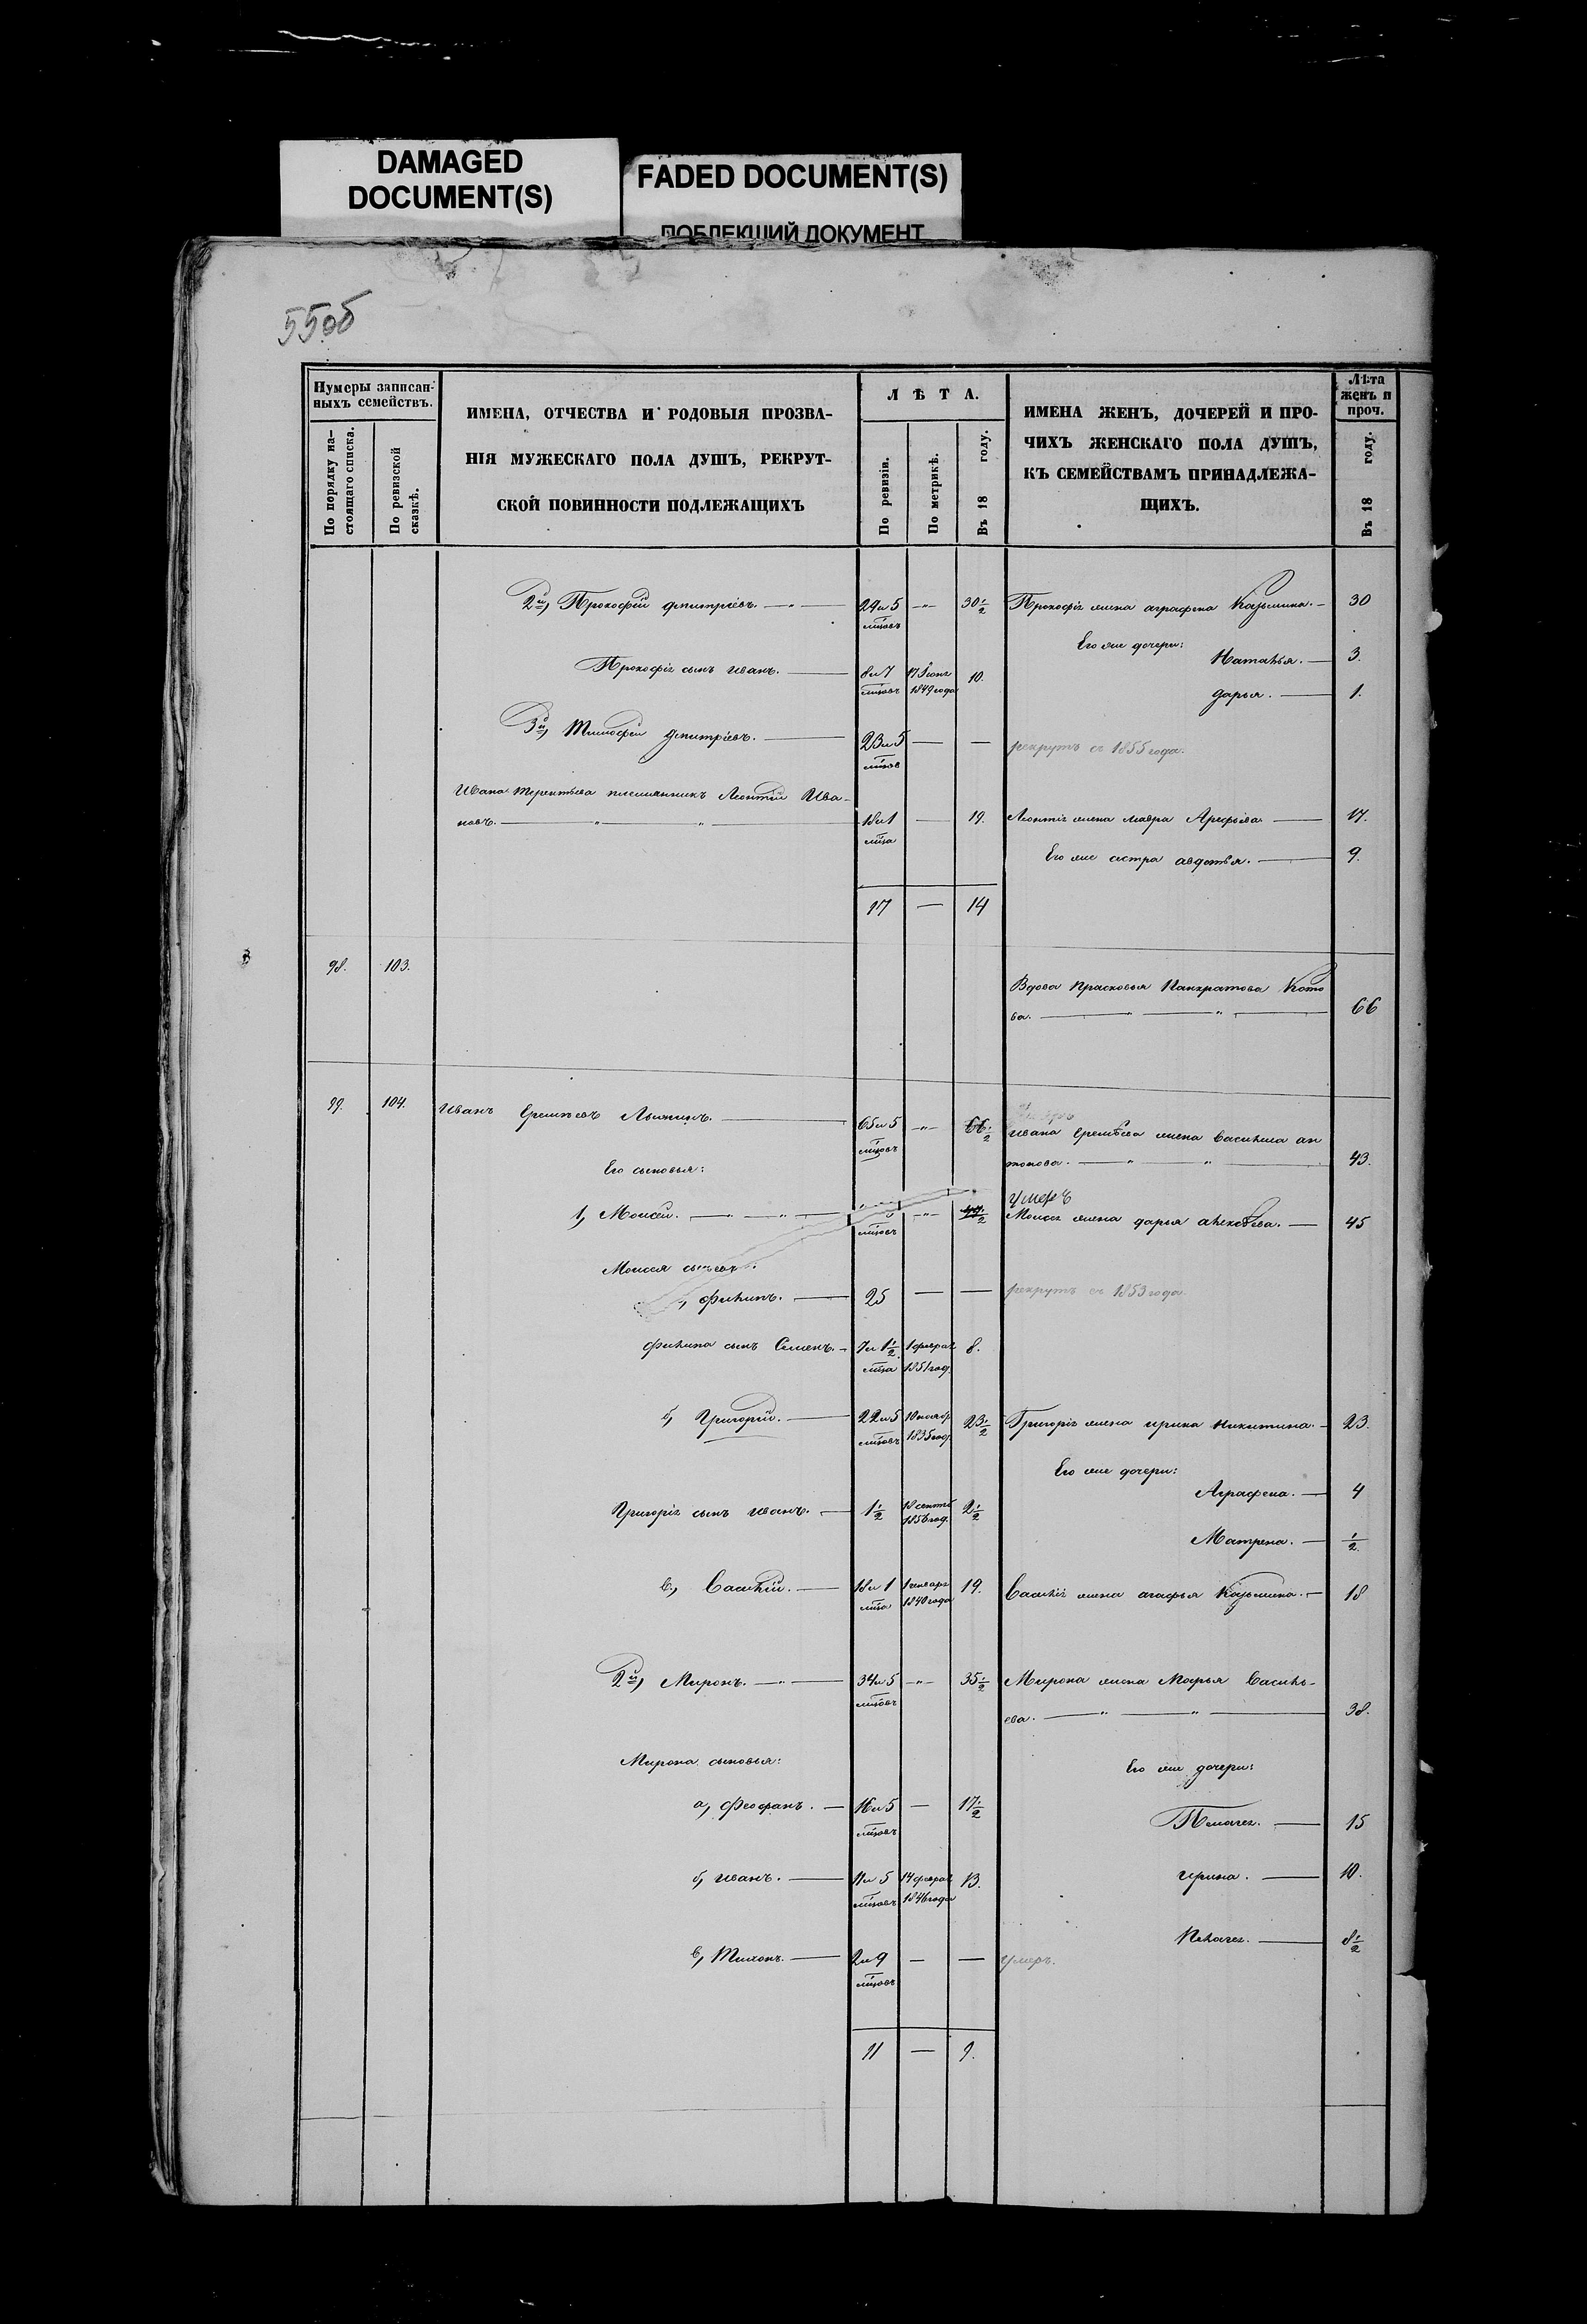 DAMAGED
DOCUMENT(S)
FADED DOCUMENT(S)
ПОБЛЕКШИЙ ДОКУМЕНТ
55об
Нумеры записан-
ныхъ семействъ.
По порядку на-
стоящаго списка.
По ревизской
сказкѣ.
ИМЕНА, ОТЧЕСТВА И РОДОВЫЯ ПРОЗВА-
НІЯ МУЖЕСКАГО ПОЛА ДУШЪ, РЕКРУТ-
СКОЙ ПОВИННОСТИ ПОДЛЕЖАЩИХЪ
ЛѢТА.
По ревизіи.
По метрикѣ.
Въ 18 году.
ИМЕНА ЖЕНЪ, ДОЧЕРЕЙ И ПРО-
ЧИХЪ ЖЕНСКАГО ПОЛА ДУШЪ,
КЪ СЕМЕЙСТВАМЪ ПРИНАДЛЕЖА-
ЩИХЪ.
Лѣта
женъ и
проч.
Въ 18 году.
2й, Прокофій Дмитріевъ. — 29 и 5 мѣсяц. — 30½ Прокофія жена Аграфена Казьмина. — 30
Его же дочери:
Наталья. — 3.
Прокофія сынъ Иванъ. — 8 и 7 мѣсяц. 17 Іюня 1849 года 10.
Дарья. — 1.
3й, Тимофей Дмитріевъ. — 23 и 5 мѣсяц. — — рекрутъ съ 1855 года.
Ивана Терентьева племянникъ Леонтій Ива-
новъ. — 18 и 1 мѣсяца — 19. Леонтія жена Мавра Арефьева — 17.
Его же сестра Авдотья. — 9.
17 — 14
98. 103.
Вдова Прасковья Панкратова Кото
ва. — 66
99. 104. Иванъ Еремѣевъ — 65 и 5 мѣсяц. — 66½ Ивана Еремѣева жена Василиса Ан
тонова. — 43.
Его сыновья:
умеръ
1, Моисей. — мѣсяц. — Моисея жена Дарья Алексѣева. — 45
Моисея сыновья:
Филипъ. — 25 — — рекрутъ съ 1853 года.
Филипа сынъ Семенъ. — 7 и 1½ мѣсяца 1 февраля 1851 год. 8.
б, Григорій. — 22 и 5 мѣсяц. 10 ноября 1835 год. 23½ Григорія жена Ирина Никитина. — 23.
Его же дочери:
Аграфена. — 4
Григорія сынъ Иванъ. — 1½ 18 сентяб 1856 год. 2½
Матрена. — ½.
в, Василій. — 18 и 1 мѣсяца 1 января 1840 года 19. Василія жена Агафья Казьмина. — 18
2й, Миронъ. — 34 и 5 мѣсяц. — 35½ Мирона жена Марья Василь-
ева. — 38.
Мирона сыновья:
Его же дочери:
а, Феофанъ. — 16 и 5 мѣсяц. — 17½
Пелагея. — 15
б, Иванъ. — 11 и 5 мѣсяц. 14 февраля 1846 года 13.
Ирина. — 10.
Пелагея. — 8½
в, Тихонъ. — 2 и 9 мѣсяц. — — умеръ.
11 — 9.